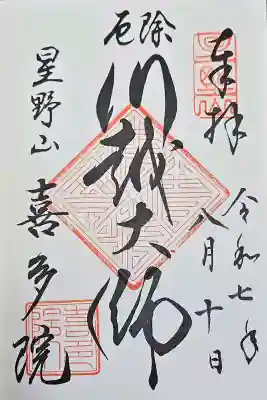 奉拝
令和七年
八月十日
厄除
川越大師
星野山
喜多院